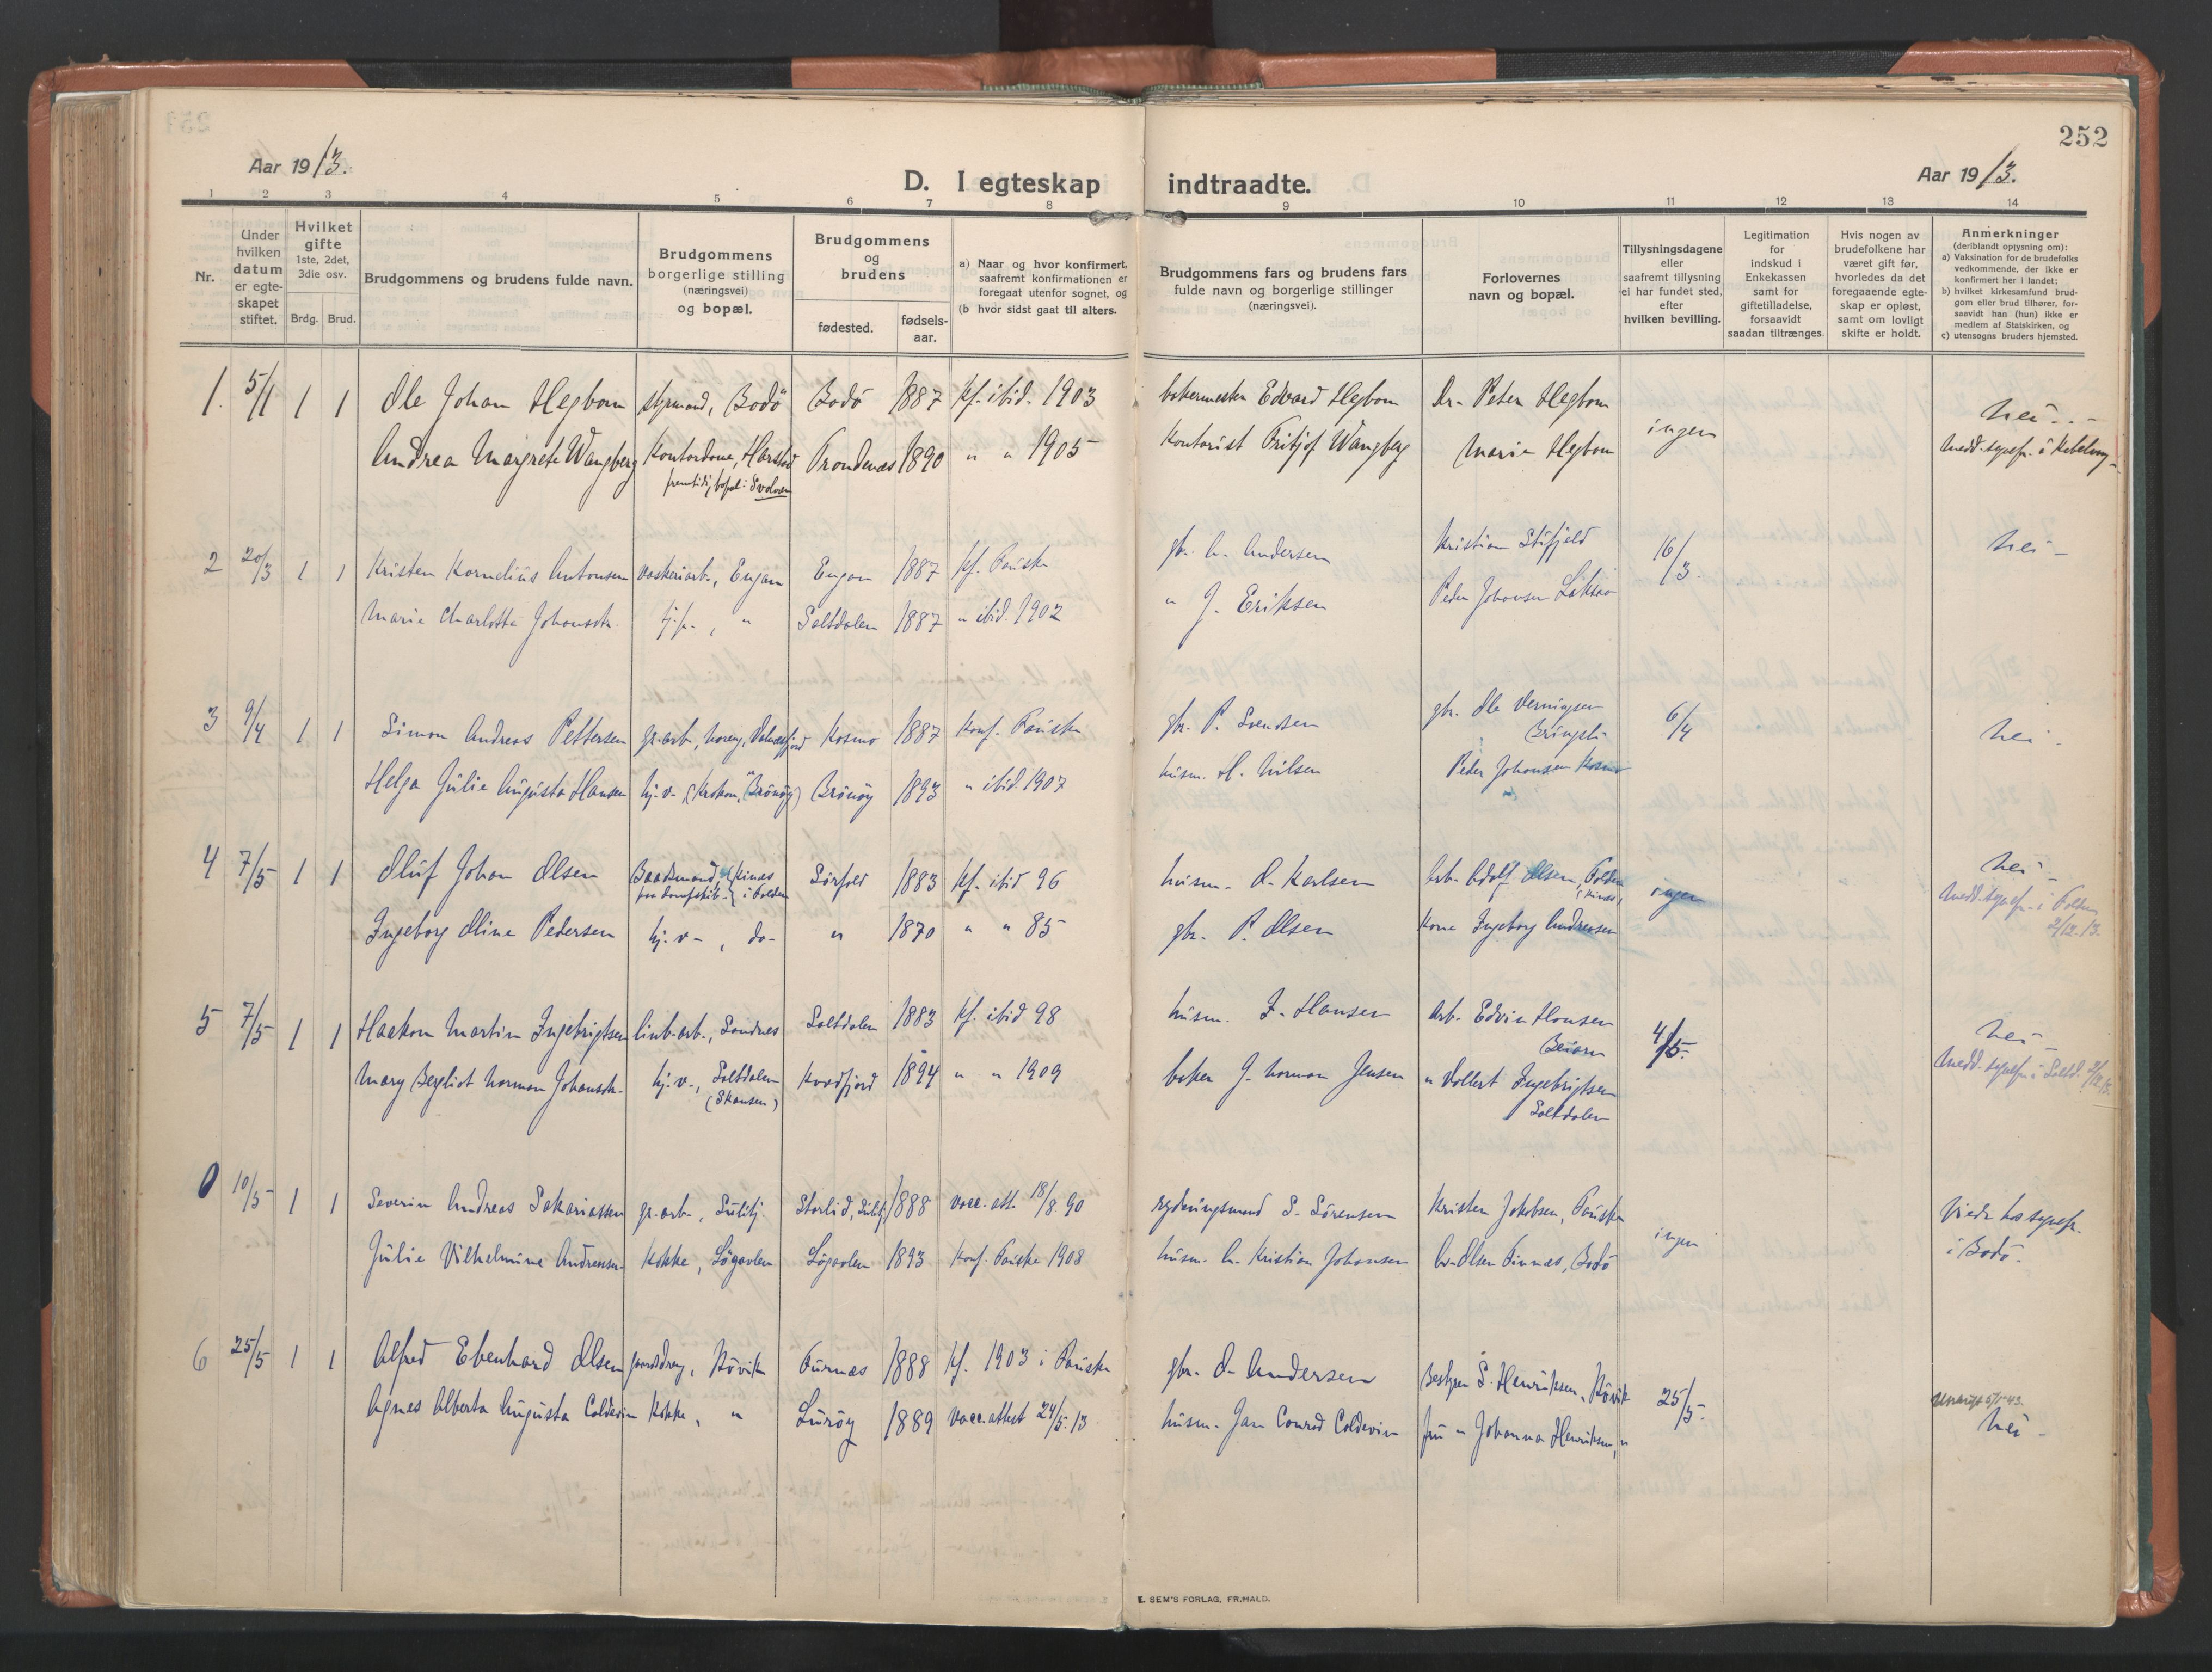 252
Aar 1913.
D. I egteskap indtraadte.
Aar 1913.
1 2 3 4 5 6 7 8 9 10 11 12 13 14
Nr.
Under hvilken datum er egte-skapet stiftet.
Hvilket gifte 1ste, 2det, 3die osv.
Brdg. Brud.
Brudgommens og brudens fulde navn.
Brudgommens borgerlige stilling (næringsvei) og bopæl.
Brudgommens og brudens
fødested.
fødsels-aar.
a) Naar og hvor konfirmert, saafremt konfirmationen er foregaat utenfor sognet, og
(b hvor sidst gaat til alters.
Brudgommens fars og brudens fars fulde navn og borgerlige stillinger (næringsvei).
Forlovernes navn og bopæl.
Tillysningsdagene eller saafremt tillysning ei har fundet sted, efter hvilken bevilling.
Legitimation for indskud i Enkekassen samt for giftetilladelse, forsaavidt saadan tiltrænges.
Hvis nogen av brudefolkene har været gift før, hvorledes da det foregaaende egte-skap er opløst, samt om lovligt skifte er holdt.
Anmerkninger
(deriblandt opjysning om):
a) Vaksination for de brudefolks vedkommende, der ikke er konfirmert her i landet;
b) hvilket kirkesamfund brud-gom eller brud tilhører, for-saavidt han (hun) ikke er medlem af Statskirken, og
c) utensogns bruders hjemsted.
1. 5/1 1 1 Ole Johan Hegbom styrmand, Bodö Bodö 1887 kf. ibid. 1903 bakermester Edvard Hegbom Dr. Peter Hegbom ingen nei
Andrea Margrete Wangberg Kontordame, Harstad Trondenæs 1890 " " 1905 Kontorist Fritjof Wangberg Marie Hegbom
fremtidig bopæl: Svolvær
2 20/3 1 1 Kristen Kornelius Antonsen vaskeriarb., Engan Engan 1887 kf. Fauske gbr. A. Andersen Kristian Stifjeld 16/3. nei
Marie Charlotte Johansdtr. tj.p., " Saltdalen 1887 " ibid. 1902 " J. Eriksen Peder Johansen
3 9/4 1 1 Simon Andreas Pettersen gr.arb., Kosmo 1887 Konf. Fauske gbr. P. Svendsen gbr. Ole 6/4 nei
Helga Julie Augusta Hansen hj.v. Brönöy 1893 " ibid. 1907 husm. H. Nilsen Peder Johansen Kosmo
4 7/5 1 1 Oluf Johan Olsen Baadsmand Sörfold 1883 kf. ibid 96 husm. O. Karlsen Arb. Adolf Olsen, Folden ingen nei
Ingeborg Oline Pedersen hj.v., do " 1870 " " 85 gbr. P. Olsen Kone Ingeborg Andreasen
2/12.13.
5 7/5 1 1 Haakon Martin Ingebrigtsen linb.arb., Sandnes Saltdalen 1883 kf. ibid 98 husm. I. Hansen Arb. Edvin Hansen 4/5. nei
Beiarn
Mary Bergliot Norman Johansdtr. hj.v., Saltdalen Kvædfjord 1894 " " 1909 baker J. Norman Jensen " Vollert Ingebrigtsen
(Skansen) Saltdalen
0 10/5 1 1 Severin Andreas Sakariassen gr.arb., Sulitj. Storlid, Sulitj. 1888 vacc.att. 18/8.90 rydningsmand S. Sörensen Kristen Jakobsen, Fauske ingen Viede hos sognepr.
Julie Vilhelmine Andreasen Kokke, Lögavlen Lögavlen 1893 Konf. Fauske 1908 husm. A. Kristian Johansen A. Olsen Finnæs, Bodö i Bodö.
6 25/5 1 1 Alfred Ebenhard Olsen gaardsdreng, Rövik Furnæs 1888 kf. 1903 i Fauske gbr. O. Andersen Bestyrer S. Henriksen, Rövik 25/5.
Agnes Alberta Augusta Coldevin Kokke, " Luröy 1889 vacc.attest 24/5.13 husm. Jan Conrad Coldevin fru " Johanna Henriksen, " nei
E. SEM'S FORLAG, FR.HALD.